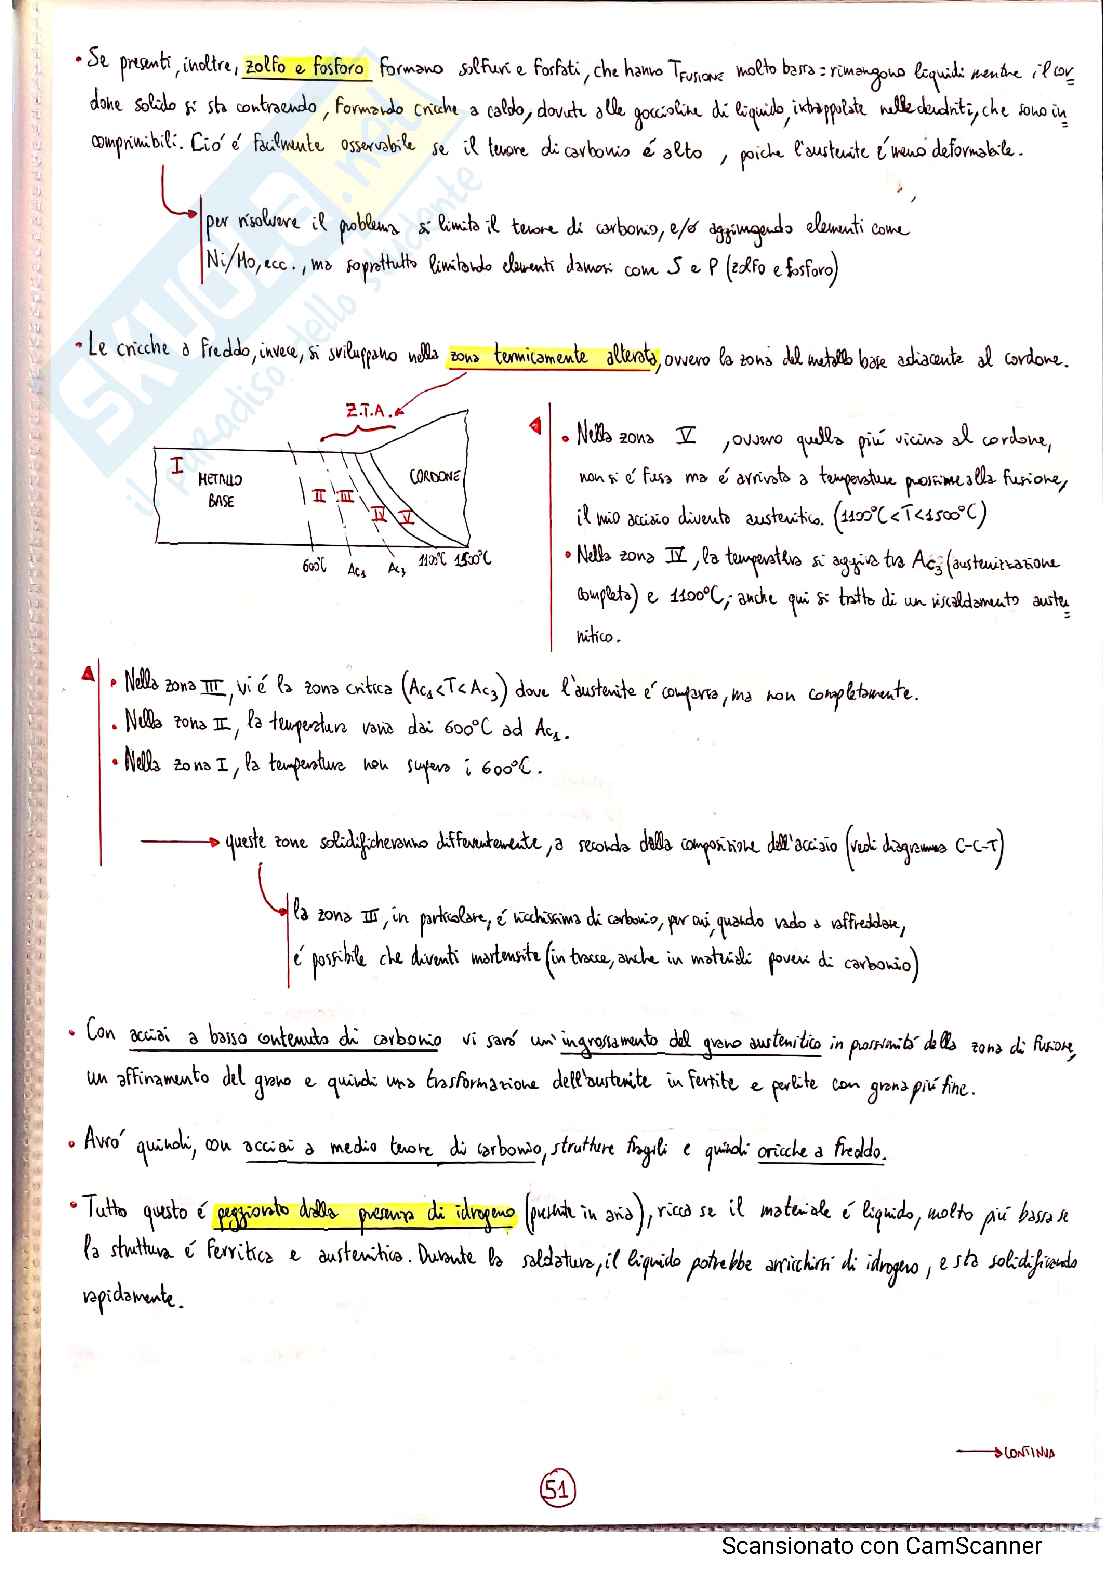 • Se presenti, inoltre, zolfo e fosforo formano solfuri e fosfati, che hanno TFUSIONE molto bassa: rimangono liquidi mentre il cor
done solido si sta contraendo, formando cricche a caldo, dovute alle goccioline di liquido, intrappolate nelle dendriti, che sono in
comprimibili. Ció é facilmente osservabile se il tenore di carbonio é alto, poiche l'austenite é meno deformabile.
per risolvere il problema si limita il tenore di carbonio, e/o aggiungendo elementi come
Ni/Mo, ecc., ma soprattutto limitando elementi dannosi come S e P (zolfo e fosforo)
• Le cricche a freddo, invece, si sviluppano nella zona termicamente alterata, ovvero la zona del metallo base adiacente al cordone.
Z.T.A.
I
METALLO
BASE
II
III
IV
V
CORDONE
600°C
Ac1
Ac3
1100°C
1500°C
• Nella zona V, ovvero quella piú vicina al cordone,
non si é fusa ma é arrivata a temperature prossime alla fusione,
il mio acciaio diventa austenitico. (1100°C<T<1500°C)
• Nella zona IV, la temperatura si aggira tra Ac3 (austenizzazione
completa) e 1100°C; anche qui si tratta di un riscaldamento auste
nitico.
• Nella zona III, vi é la zona critica (Ac1<T<Ac3) dove l'austenite é comparsa, ma non completamente.
• Nella zona II, la temperatura varia dai 600°C ad Ac1.
• Nella zona I, la temperatura non supera i 600°C.
queste zone solidificheranno differentemente, a seconda della composizione dell'acciaio (vedi diagramma C-C-T)
la zona III, in particolare, é ricchissima di carbonio, per cui, quando vado a raffreddare,
é possibile che diventi martensite (in tracce, anche in materiali poveri di carbonio)
• Con acciai a basso contenuto di carbonio vi sará un'ingrossamento del grano austenitico in prossimitá della zona di fusione,
un affinamento del grano e quindi una trasformazione dell'austenite in ferrite e perlite con grana piú fine.
• Avró quindi, con acciai a medio tenore di carbonio, strutture fragili e quindi cricche a freddo.
• Tutto questo é peggiorato dalla presenza di idrogeno (presente in aria), ricca se il materiale é liquido, molto piú bassa se
la struttura é ferritica e austenitica. Durante la saldatura, il liquido potrebbe arricchirsi di idrogeno, e sta solidificando
rapidamente.
→ CONTINUA
51
Scansionato con CamScanner
SKUOLA.net
il paradiso dello studente